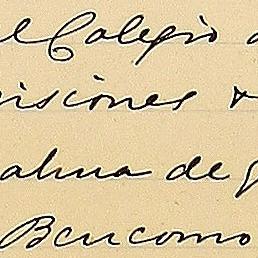 el Colegio d
isiones y
alma de g
Bencomo